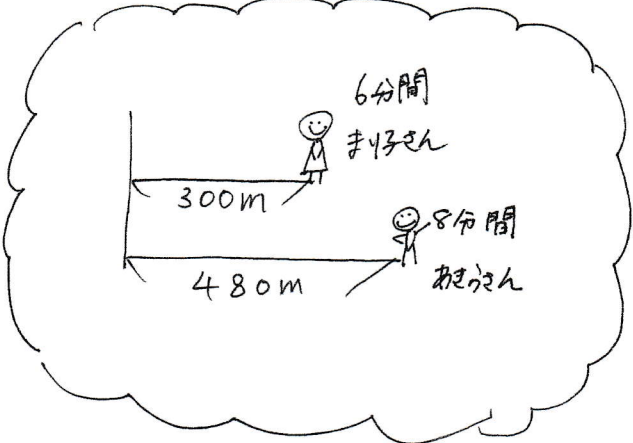 6分間
まり子さん
300m
8分間
480m
あきらさん